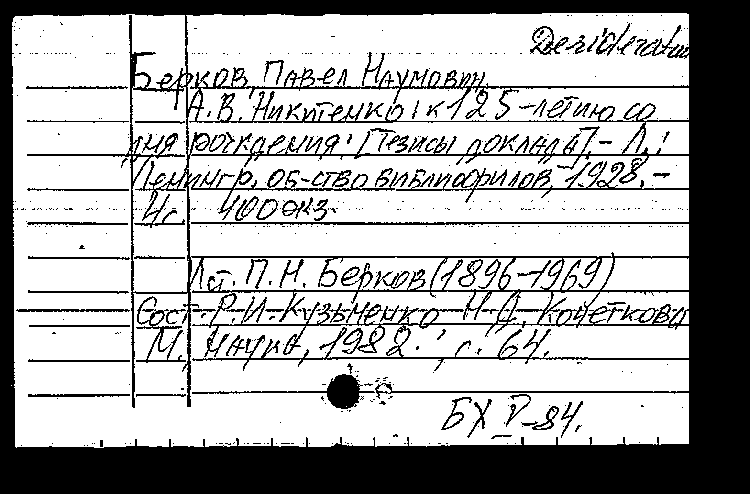 Desiderata
Берков, Павел Наумович
А.В. Никитенко: к 125-летию со
дня рождения: [Тезисы доклада]. - Л.:
Ленингр. об-ство библиофилов, 1928. -
4с. 400 экз.
П.Н. Берков (1896-1969)
Сост. Р.И. Кузьменко Н.Д. Кочеткова
М., Наука, 1982. , с. 64.
БХ V-84.